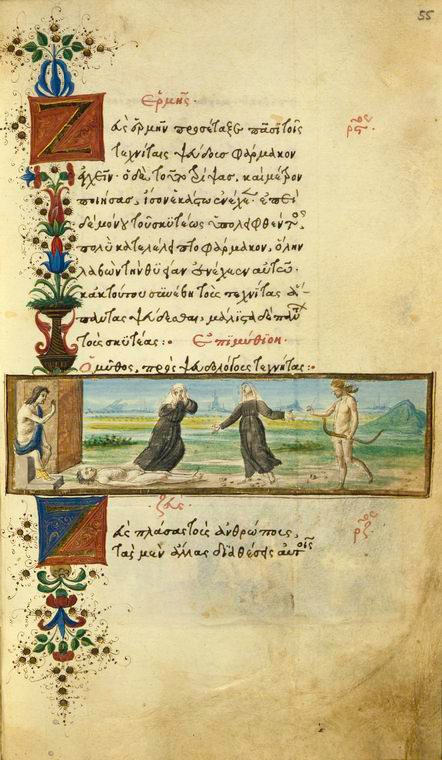 55
Ἑρμῆς.
Ζεὺς ἑρμῆν προσέταξε πᾶσι τοῖς ρϛ ος
τεχνίταις ψεύδους φάρμακον
χέειν· ὁ δὲ, τοῦτο τρίψας, καὶ μέτρον
ποιήσας, ἴσον ἑκάστῳ ἐνέχει. ἐπεὶ
δὲ μόνου τοῦ σκυτέως ὑπολειφθέντος,
πολὺ κατελέλειπτο φάρμακον, ὅλην
λαβὼν τὴν θυΐαν ἐνέχεεν αὐτῷ.
κἀκ τούτου συνέβη τοὺς τεχνίτας ἅ-
παντας ψεύδεσθαι, μάλιστα δὲ πάντων
τοὺς σκυτέας:· Ἐπιμύθιον.
Ὁ μῦθος, πρὸς ψευδολόγους τεχνίτας:·
Ζεύς.
Ζεὺς πλάσας τοὺς ἀνθρώπους, ρζ ος
τὰς μὲν ἄλλας διαθέσεις αὐτοῖς